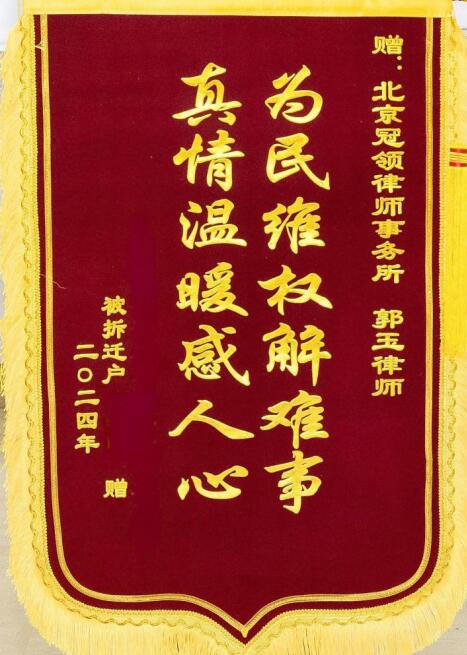 赠：北京冠领律师事务所 郭玉律师
为民维权解难事
真情温暖感人心
被折迁户 赠
二〇二四年